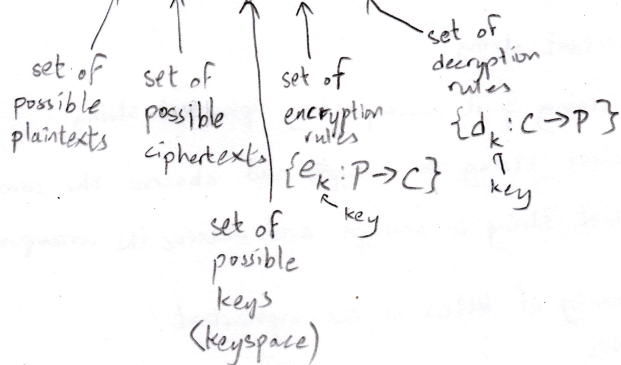 set of
possible
plaintexts
set of
possible
ciphertexts
set of
possible
keys
(keyspace)
set of
encryption
rules
{e_k : P → C}
key
set of
decryption
rules
{d_k : C → P}
key